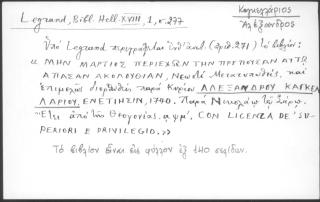 Legrand, Bibl. Hell. XVIII, 1, σ. 277
Καγκελλάριος
Ἀλέξανδρος
Ὑπὸ Legrand περιγράφεται ὑπ' ἀριθ. (ἀριθ. 271) τὸ βιβλίον:
« ΜΗΝ ΜΑΡΤΙΟΣ ΠΕΡΙΕΧΩΝ ΤΗΝ ΠΡΕΠΟΥΣΑΝ ΑΥΤῼ
ΑΠΑΣΑΝ ΑΚΟΛΟΥΘΙΑΝ, Νεωστὶ Μετατυπωθεὶς, καὶ
Ἐπιμελῶς διορθωθεὶς παρὰ Κυρίου ΑΛΕΞΑΝΔΡΟΥ ΚΑΓΚΕΛ
ΛΑΡΙΟΥ, ΕΝΕΤΙΗΣΙΝ, 1740. Παρὰ Νικολάῳ τῷ Σάρῳ.
Ἔτει ἀπὸ τῆς Θεογονίας αψμ'. CON LICENZA DE' SU-
PERIORI E PRIVILEGIO.»
Τὸ βιβλίον εἶναι εἰς φύλλον ἐξ 140 σελίδων.